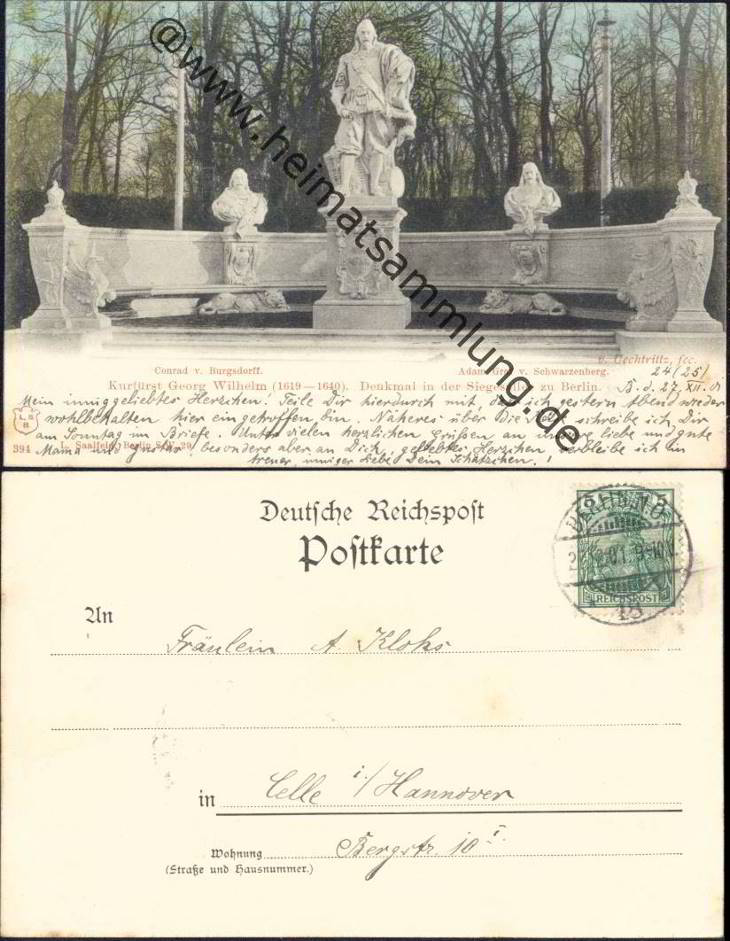 @www.heimatsammlung.de
v. Uechtritz, fec.
Conrad v. Burgsdorff. Adam Graf v. Schwarzenberg.
24/25
Kurfürst Georg Wilhelm (1619—1640). Denkmal in der Siegesallee zu Berlin. B. d. 27. XII. 01
Mein inniggeliebtes Herzchen! Teile Dir hierdurch mit, daß ich gestern Abend wieder
wohlbehalten hier eingetroffen bin. Näheres über Die schreibe ich Dir
am Sonntag im Briefe. Unter vielen herzlichen Grüßen an unsere liebe und gute
Mama und Gustav, besonders aber an Dich, geliebtes Herzchen verbleibe ich in
treuer, inniger Liebe Dein Schätzchen.!
L. S.
B
394 L. Saalfeld, Berlin S.W. 29
Deutsche Reichspost
Postkarte
5 5
REICHSPOST
BERLIN, N.O.
01. 9-10
18
An Fräulein A. Klohs
in Celle i/Hannover
Wohnung Bergstr. 10 I.
(Straße und Hausnummer.)